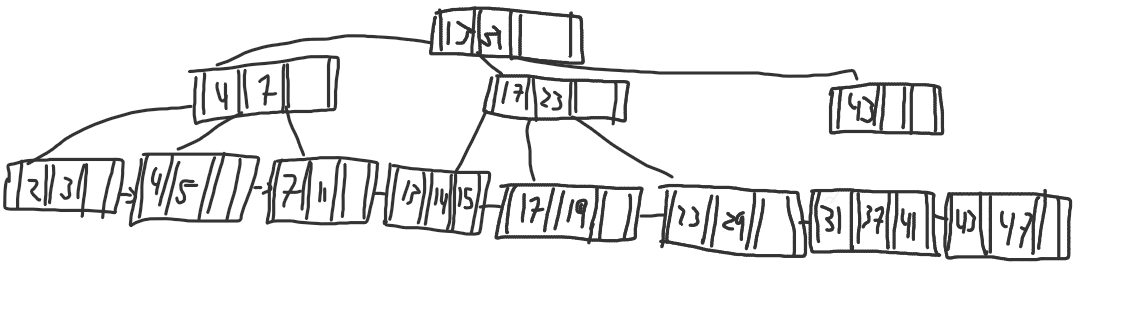 13 31
4 7
17 23
43
2 3 4 5 7 11 13 14 15 17 19 23 29 31 37 41 43 47